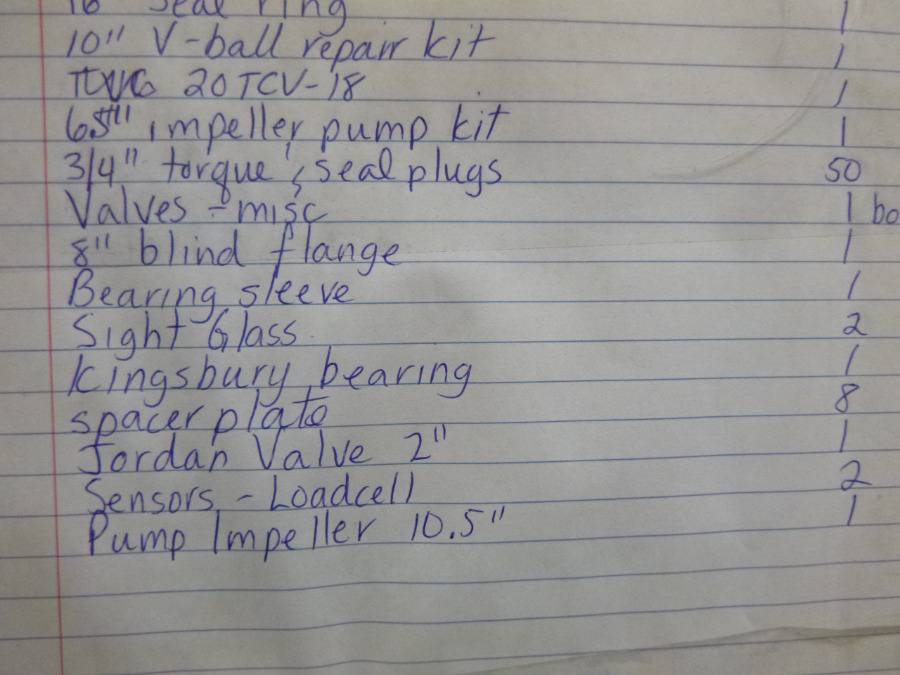 seal ring 1
10" V-ball repair kit 1
20TCV-18 1
impeller pump kit 1
3/4" torque, seal plugs 50
Valves - misc 1 bo
8" blind flange 1
Bearing sleeve 1
Sight Glass 2
Kingsbury bearing 1
spacer plate 8
Jordan Valve 2" 1
Sensors - Loadcell 2
Pump Impeller 10.5" 1